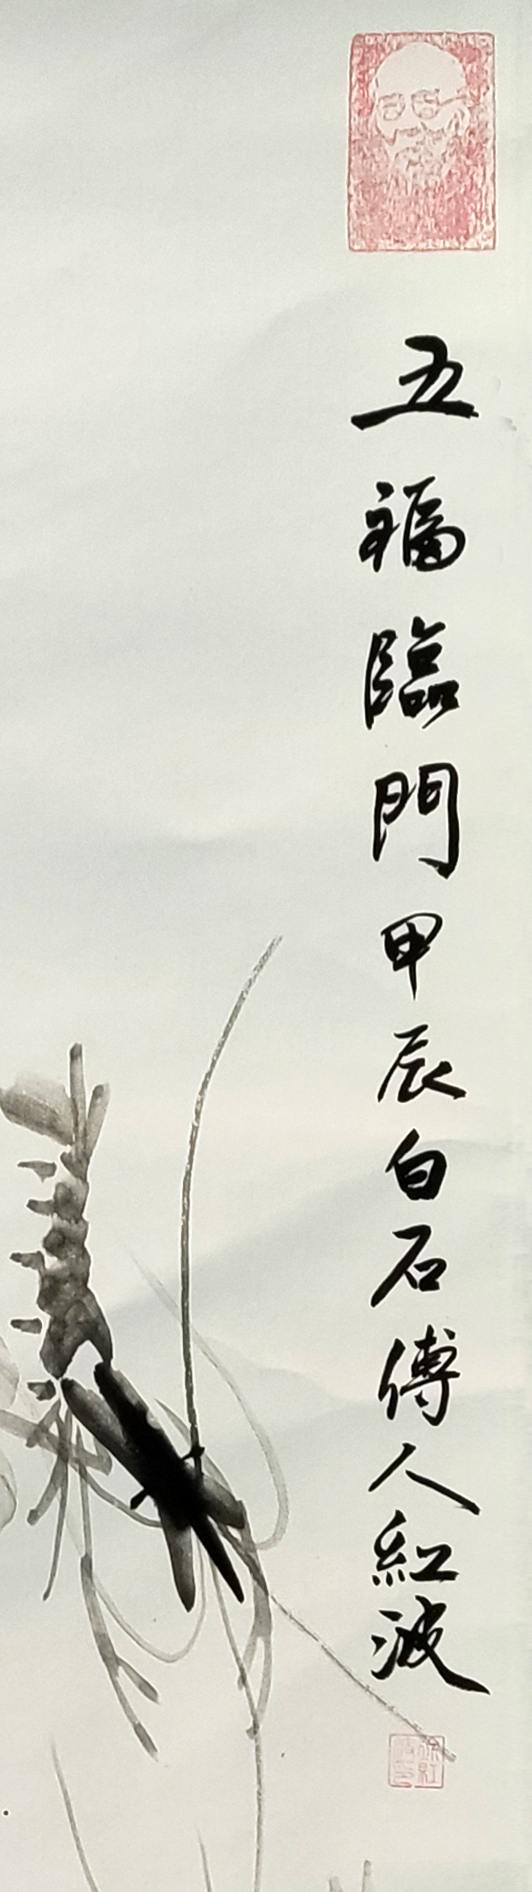 五福臨門甲辰白石傳人紅波